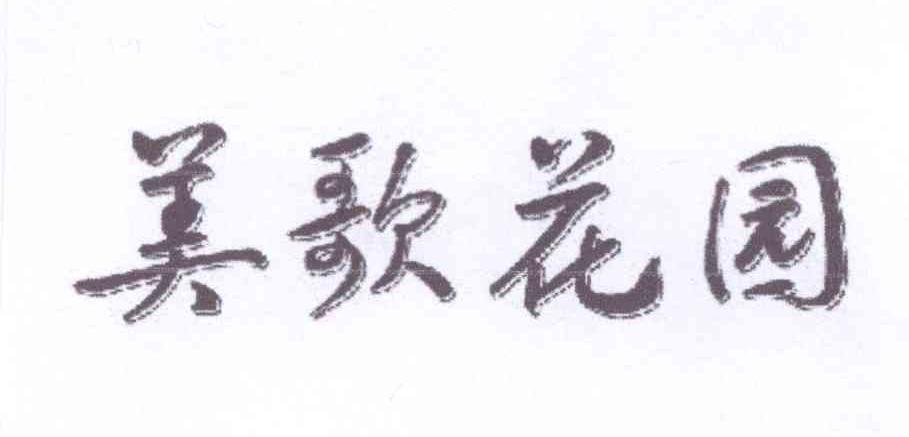 美歌花园